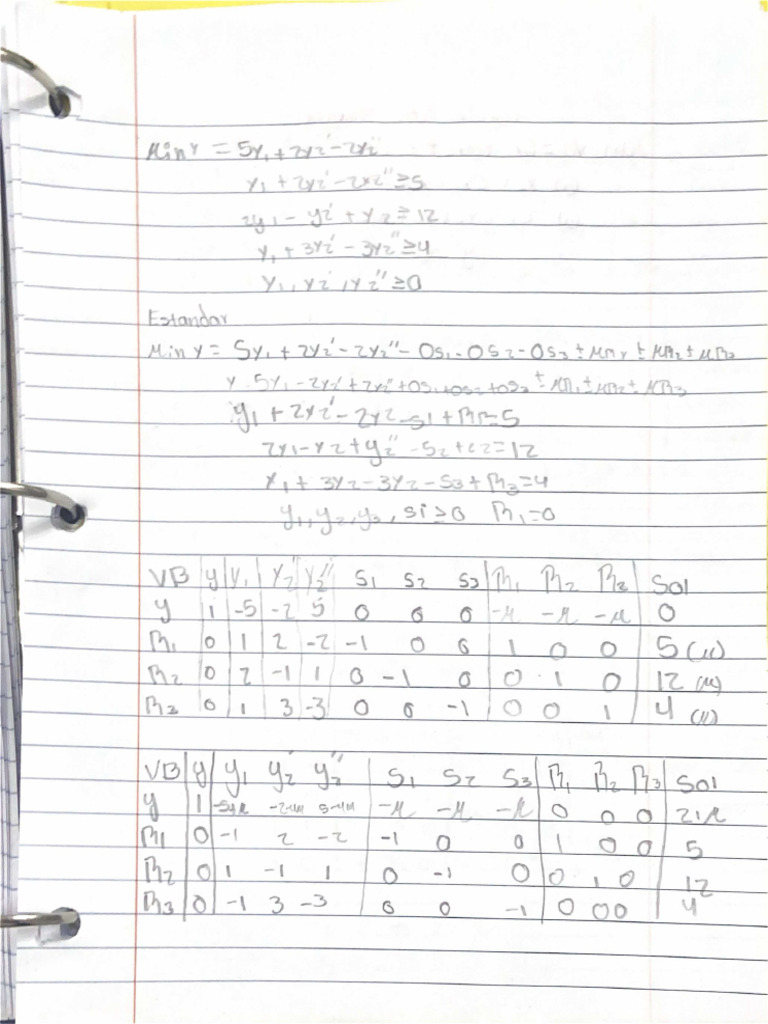 Min Y = 5y₁ + 2y₂' - 2y₂''
y₁ + 2y₂' - 2y₂'' ≥ 5
2y₁ - y₂' + y₂ ≥ 12
y₁ + 3y₂' - 3y₂'' ≥ 4
y₁, y₂', y₂'' ≥ 0
Estandar
Min Y = 5y₁ + 2y₂' - 2y₂'' - 0s₁ - 0s₂ - 0s₃ ± MR₁ ± MR₂ ± MR₃
Y - 5y₁ - 2y₂' + 2y₂'' + 0s₁ + 0s₂ + 0s₃ ± MR₁ ± MR₂ ± MR₃
y₁ + 2y₂' - 2y₂ - s₁ + R₁ = 5
2y₁ - y₂ + y₂'' - s₂ + = 12
y₁ + 3y₂ - 3y₂ - s₃ + R₃ = 4
y₁, y₂, y₃, si ≥ 0 R₁ = 0
VB y y₁ y₂' y₂'' s₁ s₂ s₃ R₁ R₂ R₃ Sol
y 1 -5 -2 5 0 0 0 -M -M -M 0
R₁ 0 1 2 -2 -1 0 0 1 0 0 5 (M)
R₂ 0 2 -1 1 0 -1 0 0 1 0 12 (M)
R₃ 0 1 3 -3 0 0 -1 0 0 1 4 (M)
VB y y₁ y₂' y₂'' s₁ s₂ s₃ R₁ R₂ R₃ Sol
y 1 5-4M -M -M -M 0 0 0 21M
R₁ 0 -1 2 -2 -1 0 0 1 0 0 5
R₂ 0 1 -1 1 0 -1 0 0 1 0 12
R₃ 0 -1 3 -3 0 0 -1 0 0 0 4